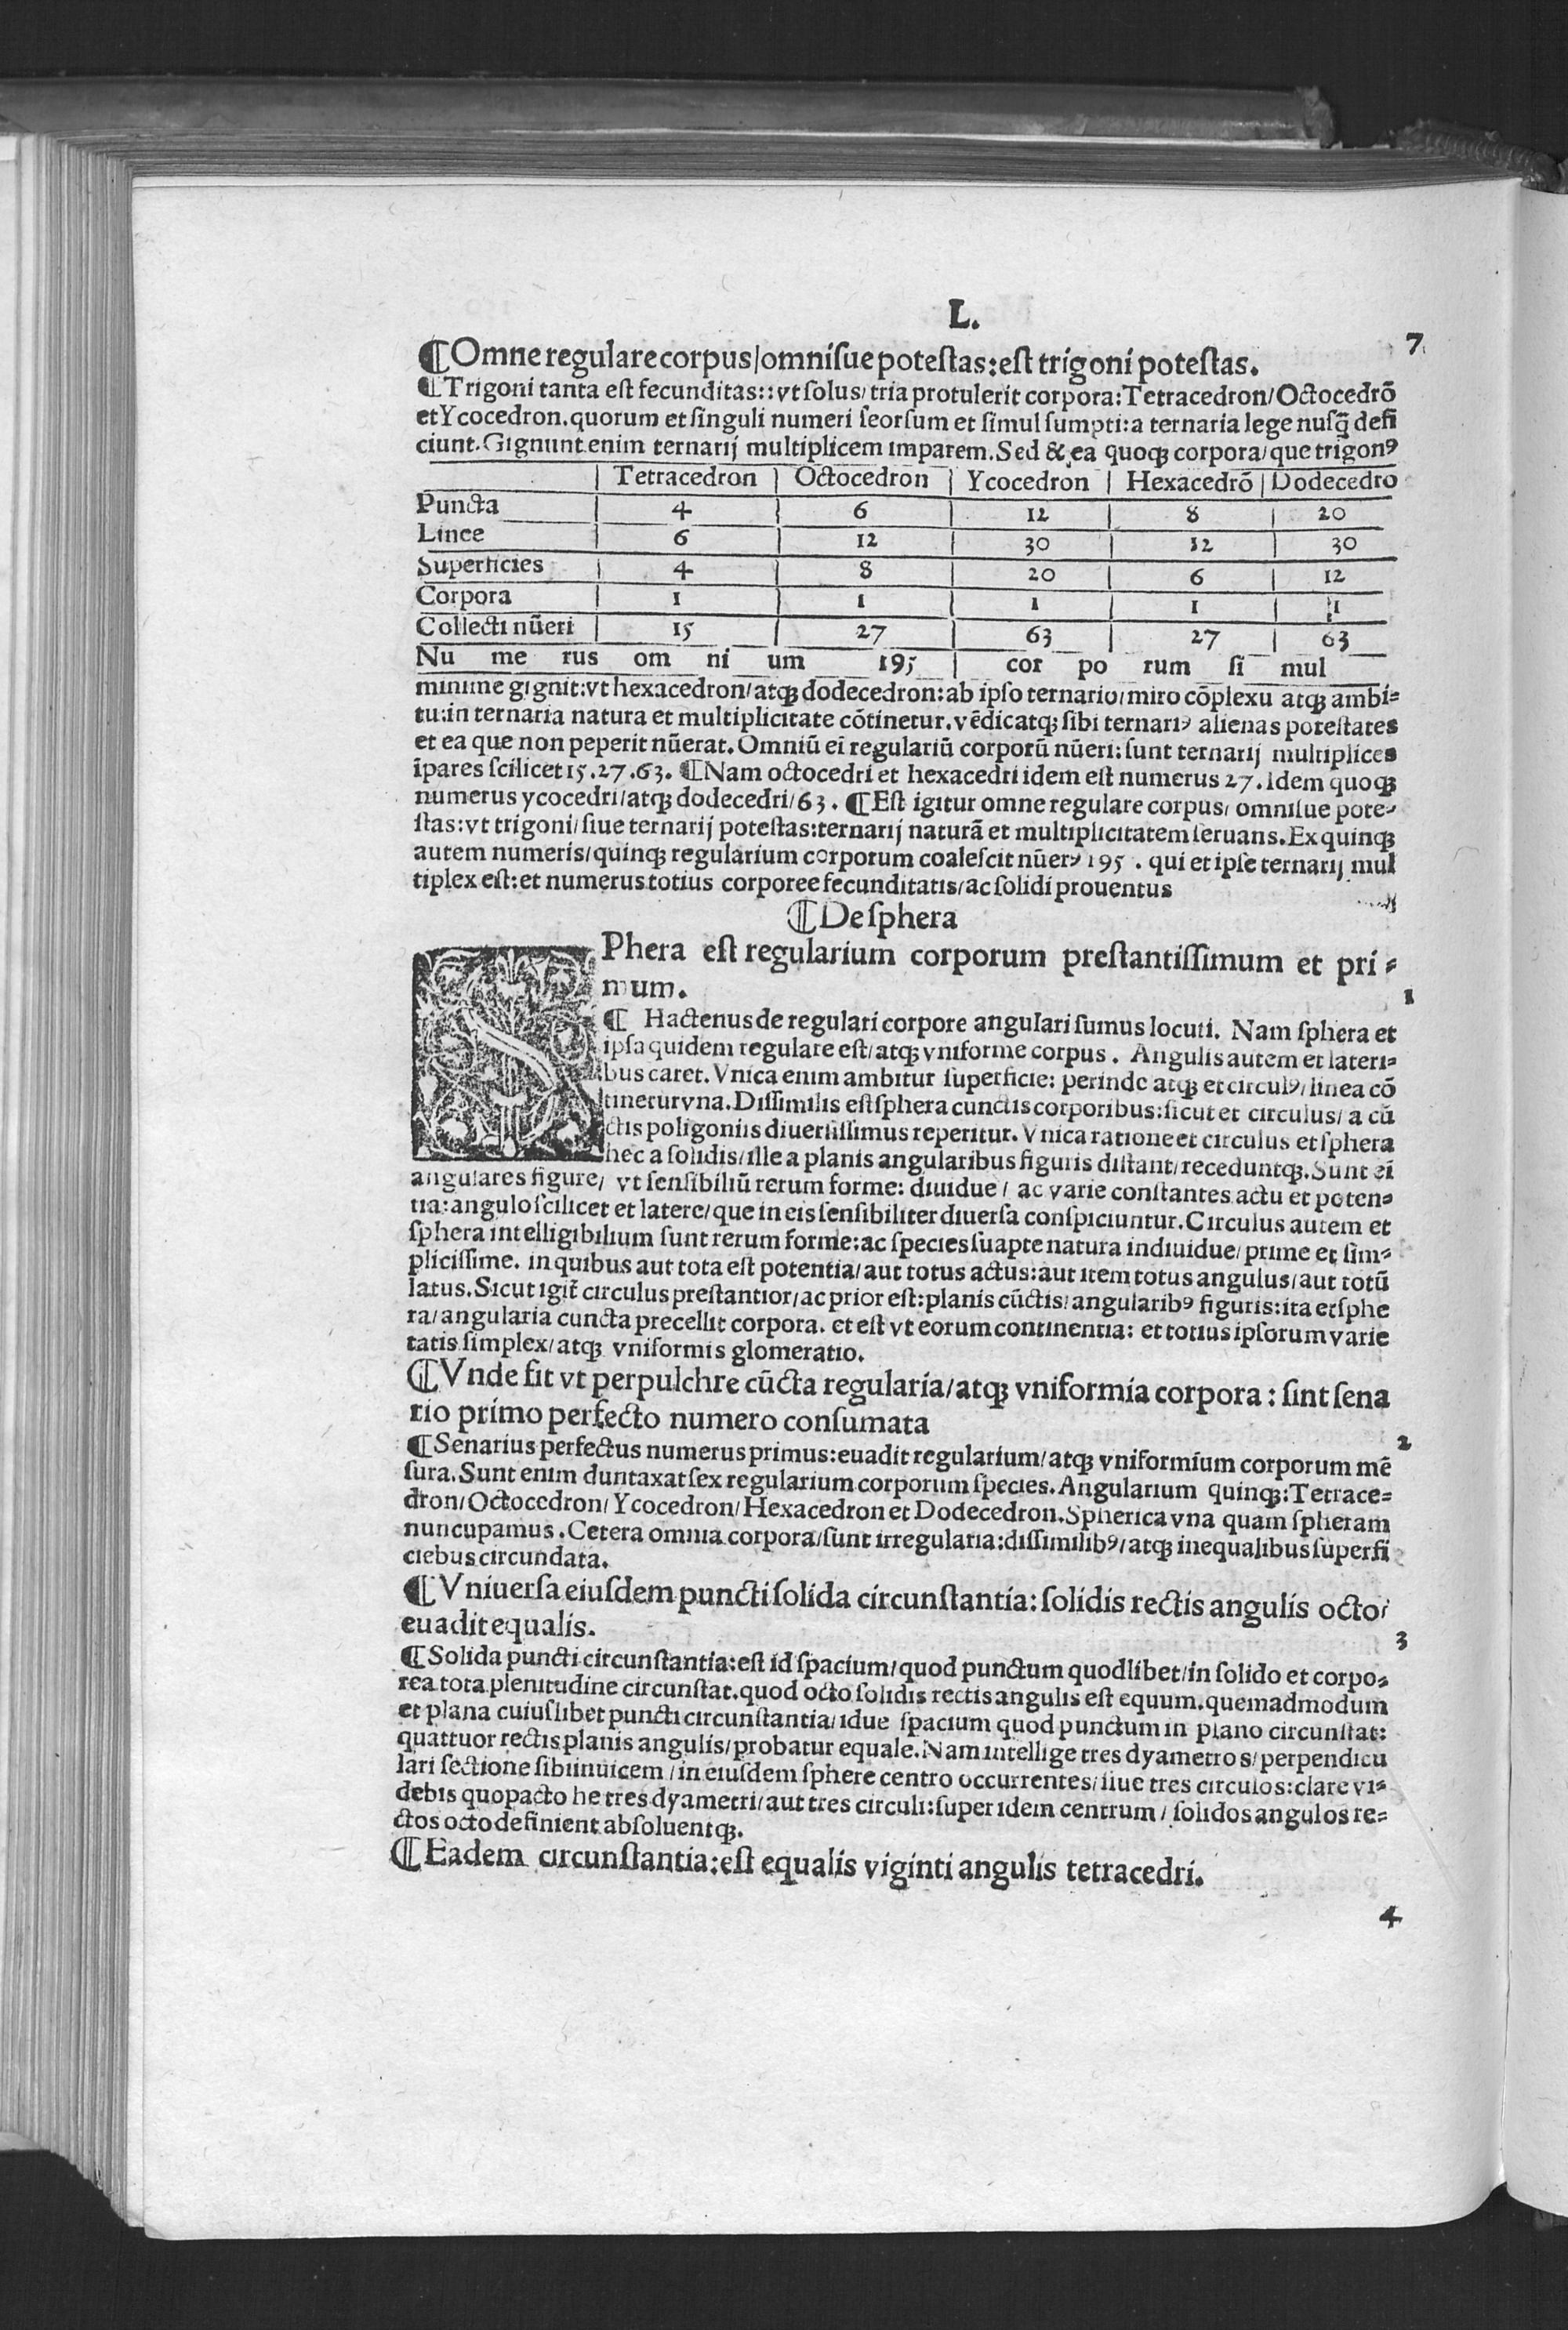 L.
¶Omne regulare corpus/omnisue potestas:est trigoni potestas. 7
¶Trigoni tanta est fecunditas::vt solus/tria protulerit corpora:Tetracedron/Octocedrō
et Ycocedron.quorum et singuli numeri seorsum et simul sumpti:a ternaria lege nusq̄ defi
ciunt.Gignunt enim ternarij multiplicem imparem.Sed & ea quoqꝫ corpora/que trigonꝰ
Tetracedron | Octocedron | Ycocedron | Hexacedrō | Dodecedro
Puncta | 4 | 6 | 12 | 8 | 20
Linee | 6 | 12 | 30 | 12 | 30
Superficies | 4 | 8 | 20 | 6 | 12
Corpora | 1 | 1 | 1 | 1 | 1
Collecti nūeri | 15 | 27 | 63 | 27 | 63
Nu me rus om ni um 195 | cor po rum si mul
minime gignit:vt hexacedron/atqꝫ dodecedron:ab ipso ternario/miro cōplexu atqꝫ ambi-
tu:in ternaria natura et multiplicitate cōtinetur.vēdicatqꝫ sibi ternariꝰ alienas potestates
et ea que non peperit nūerat.Omniū ei̅ regulariū corporū nūeri:sunt ternarij multiplices
īpares scilicet 15.27.63. ¶Nam octocedri et hexacedri idem est numerus 27.Idem quoqꝫ
numerus ycocedri/atqꝫ dodecedri/63. ¶Est igitur omne regulare corpus/omnisue pote-
stas:vt trigoni/siue ternarij potestas:ternarij naturā et multiplicitatem seruans.Ex quinqꝫ
autem numeris/quinqꝫ regularium corporum coalescit nūerꝰ 195. qui et ipse ternarij mul
tiplex est:et numerus totius corporee fecunditatis/ac solidi prouentus
¶De sphera
SPhera est regularium corporum prestantissimum et pri-
mum. 1
¶ Hactenus de regulari corpore angulari sumus locuti. Nam sphera et
ipsa quidem regulare est/atqꝫ vniforme corpus. Angulis autem et lateri-
bus caret.Vnica enim ambitur superficie: perinde atqꝫ et circulꝰ/linea cō
tinetur vna.Dissimilis est sphera cunctis corporibus:sicut et circulus/a cū
ctis poligoniis diuersissimus reperitur.Vnica ratione et circulus et sphera
hec a solidis/ille a planis angularibus figuris distant/receduntqꝫ.Sunt ei̅
angulares figure/ vt sensibiliū rerum forme: diuidue/ ac varie constantes actu et poten-
tia:angulo scilicet et latere/que in eis sensibiliter diuersa conspiciuntur.Circulus autem et
sphera intelligibilium sunt rerum forme:ac species suapte natura indiuidue/prime et sim-
plicissime. in quibus aut tota est potentia/aut totus actus:aut item totus angulus/aut totū
latus.Sicut igit̄ circulus prestantior/ac prior est:planis cūctis/angularibꝰ figuris:ita et sphe
ra/angularia cuncta precellit corpora. et est vt eorum continentia: et totius ipsorum varie
tatis simplex/atqꝫ vniformis glomeratio.
¶Vnde fit vt perpulchre cūcta regularia/atqꝫ vniformia corpora: sint sena
rio primo perfecto numero consumata
¶Senarius perfectus numerus primus:euadit regularium/atqꝫ vniformium corporum mē 2
sura.Sunt enim duntaxat sex regularium corporum species.Angularium quinqꝫ:Tetrace-
dron/Octocedron/Ycocedron/Hexacedron et Dodecedron.Spherica vna quam spheram
nuncupamus.Cetera omnia corpora/sunt irregularia:dissimilibꝰ/atqꝫ inequalibus superfi
ciebus circundata.
¶Vniuersa eiusdem puncti solida circunstantia: solidis rectis angulis octo/
euadit equalis. 3
¶Solida puncti circunstantia:est id spacium/quod punctum quodlibet/in solido et corpo-
rea tota plenitudine circunstat.quod octo solidis rectis angulis est equum.quemadmodum
et plana cuiuslibet puncti circunstantia/idue spacium quod punctum in plano circunstat:
quattuor rectis planis angulis/probatur equale.Nam intellige tres dyametros/perpendicu
lari sectione sibi inuicem/in eiusdem sphere centro occurrentes/siue tres circulos:clare vi-
debis quo pacto he tres dyametri/aut tres circuli:super idem centrum/ solidos angulos re-
ctos octo definient absoluentqꝫ.
¶Eadem circunstantia:est equalis viginti angulis tetracedri.
4